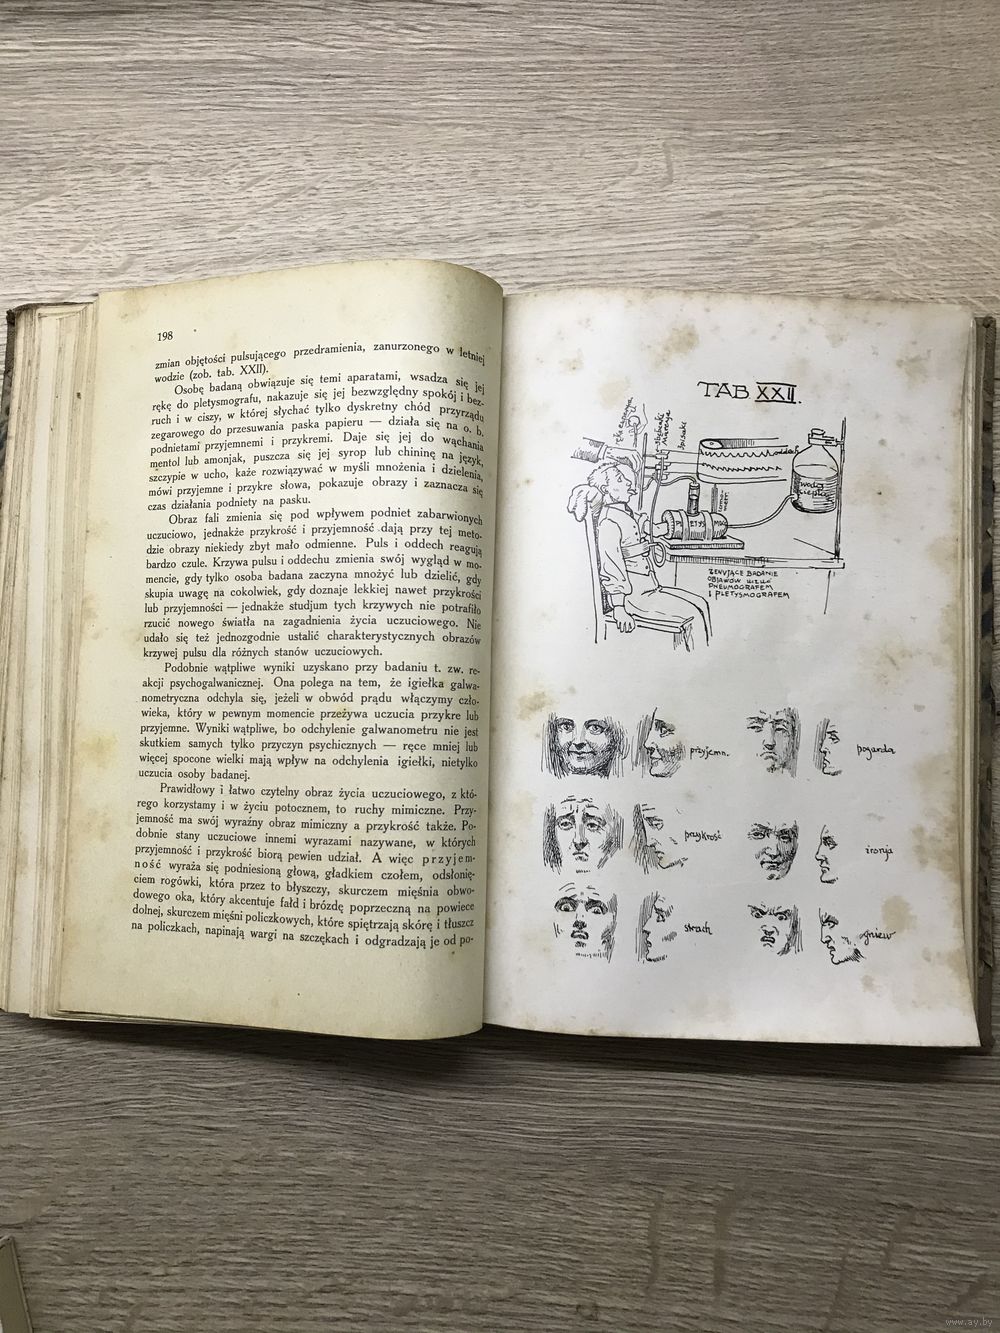 198
zmian objętości pulsującego przedramienia, zanurzonego w letniej
wodzie (zob. tab. XXII).
Osobę badaną obwiązuje się temi aparatami, wsadza się jej
rękę do pletysmografu, nakazuje się jej bezwzględny spokój i bez-
ruch i w ciszy, w której słychać tylko dyskretny chód przyrządu
zegarowego do przesuwania paska papieru — działa się na o. b.
podnietami przyjemnemi i przykremi. Daje się jej do wąchania
mentol lub amonjak, puszcza się jej syrop lub chininę na język,
szczypie w ucho, każe rozwiązywać w myśli mnożenia i dzielenia,
mówi przyjemne i przykre słowa, pokazuje obrazy i zaznacza się
czas działania podniety na pasku.
Obraz fali zmienia się pod wpływem podniet zabarwionych
uczuciowo, jednakże przykrość i przyjemność dają przy tej meto-
dzie obrazy niekiedy zbyt mało odmienne. Puls i oddech reagują
bardzo czule. Krzywa pulsu i oddechu zmienia swój wygląd w mo-
mencie, gdy tylko osoba badana zaczyna mnożyć lub dzielić, gdy
skupia uwagę na cokolwiek, gdy doznaje lekkiej nawet przykrości
lub przyjemności — jednakże studjum tych krzywych nie potrafiło
rzucić nowego światła na zagadnienia życia uczuciowego. Nie
udało się też jednozgodnie ustalić charakterystycznych obrazów
krzywej pulsu dla różnych stanów uczuciowych.
Podobnie wątpliwe wyniki uzyskano przy badaniu t. zw. re-
akcji psychogalwanicznej. Ona polega na tem, że igiełka galwa-
nometryczna odchyla się, jeżeli w obwód prądu włączymy czło-
wieka, który w pewnym momencie przeżywa uczucia przykre lub
przyjemne. Wyniki wątpliwe, bo odchylenie galwanometru nie jest
skutkiem samych tylko przyczyn psychicznych — ręce mniej lub
więcej spocone wielki mają wpływ na odchylenia igiełki, nietylko
uczucia osoby badanej.
Prawidłowy i łatwo czytelny obraz życia uczuciowego, z któ-
rego korzystamy i w życiu potocznem, to ruchy mimiczne. Przy-
jemność ma swój wyraźny obraz mimiczny a przykrość także. Po-
dobnie stany uczuciowe innemi wyrazami nazywane, w których
przyjemność i przykrość biorą pewien udział. A więc przyjem-
ność wyraża się podniesioną głową, gładkiem czołem, odsłonię-
ciem rogówki, która przez to błyszczy, skurczem mięśnia obwo-
dowego oka, który akcentuje fałd i brózdę poprzeczną na powiece
dolnej, skurczem mięśni policzkowych, które spiętrzają skórę i tłuszcz
na policzkach, napinają wargi na szczękach i odgradzają je od po-
TAB XXII.
oddech
woda
ciepła
PLETYSMOG
BADANIE
OBJAWÓW UCZUĆ
PNEUMOGRAFEM
I PLETYSMOGRAFEM
przyjemn.
pogarda
przykrość
ironja
strach
gniew
www.ay.by